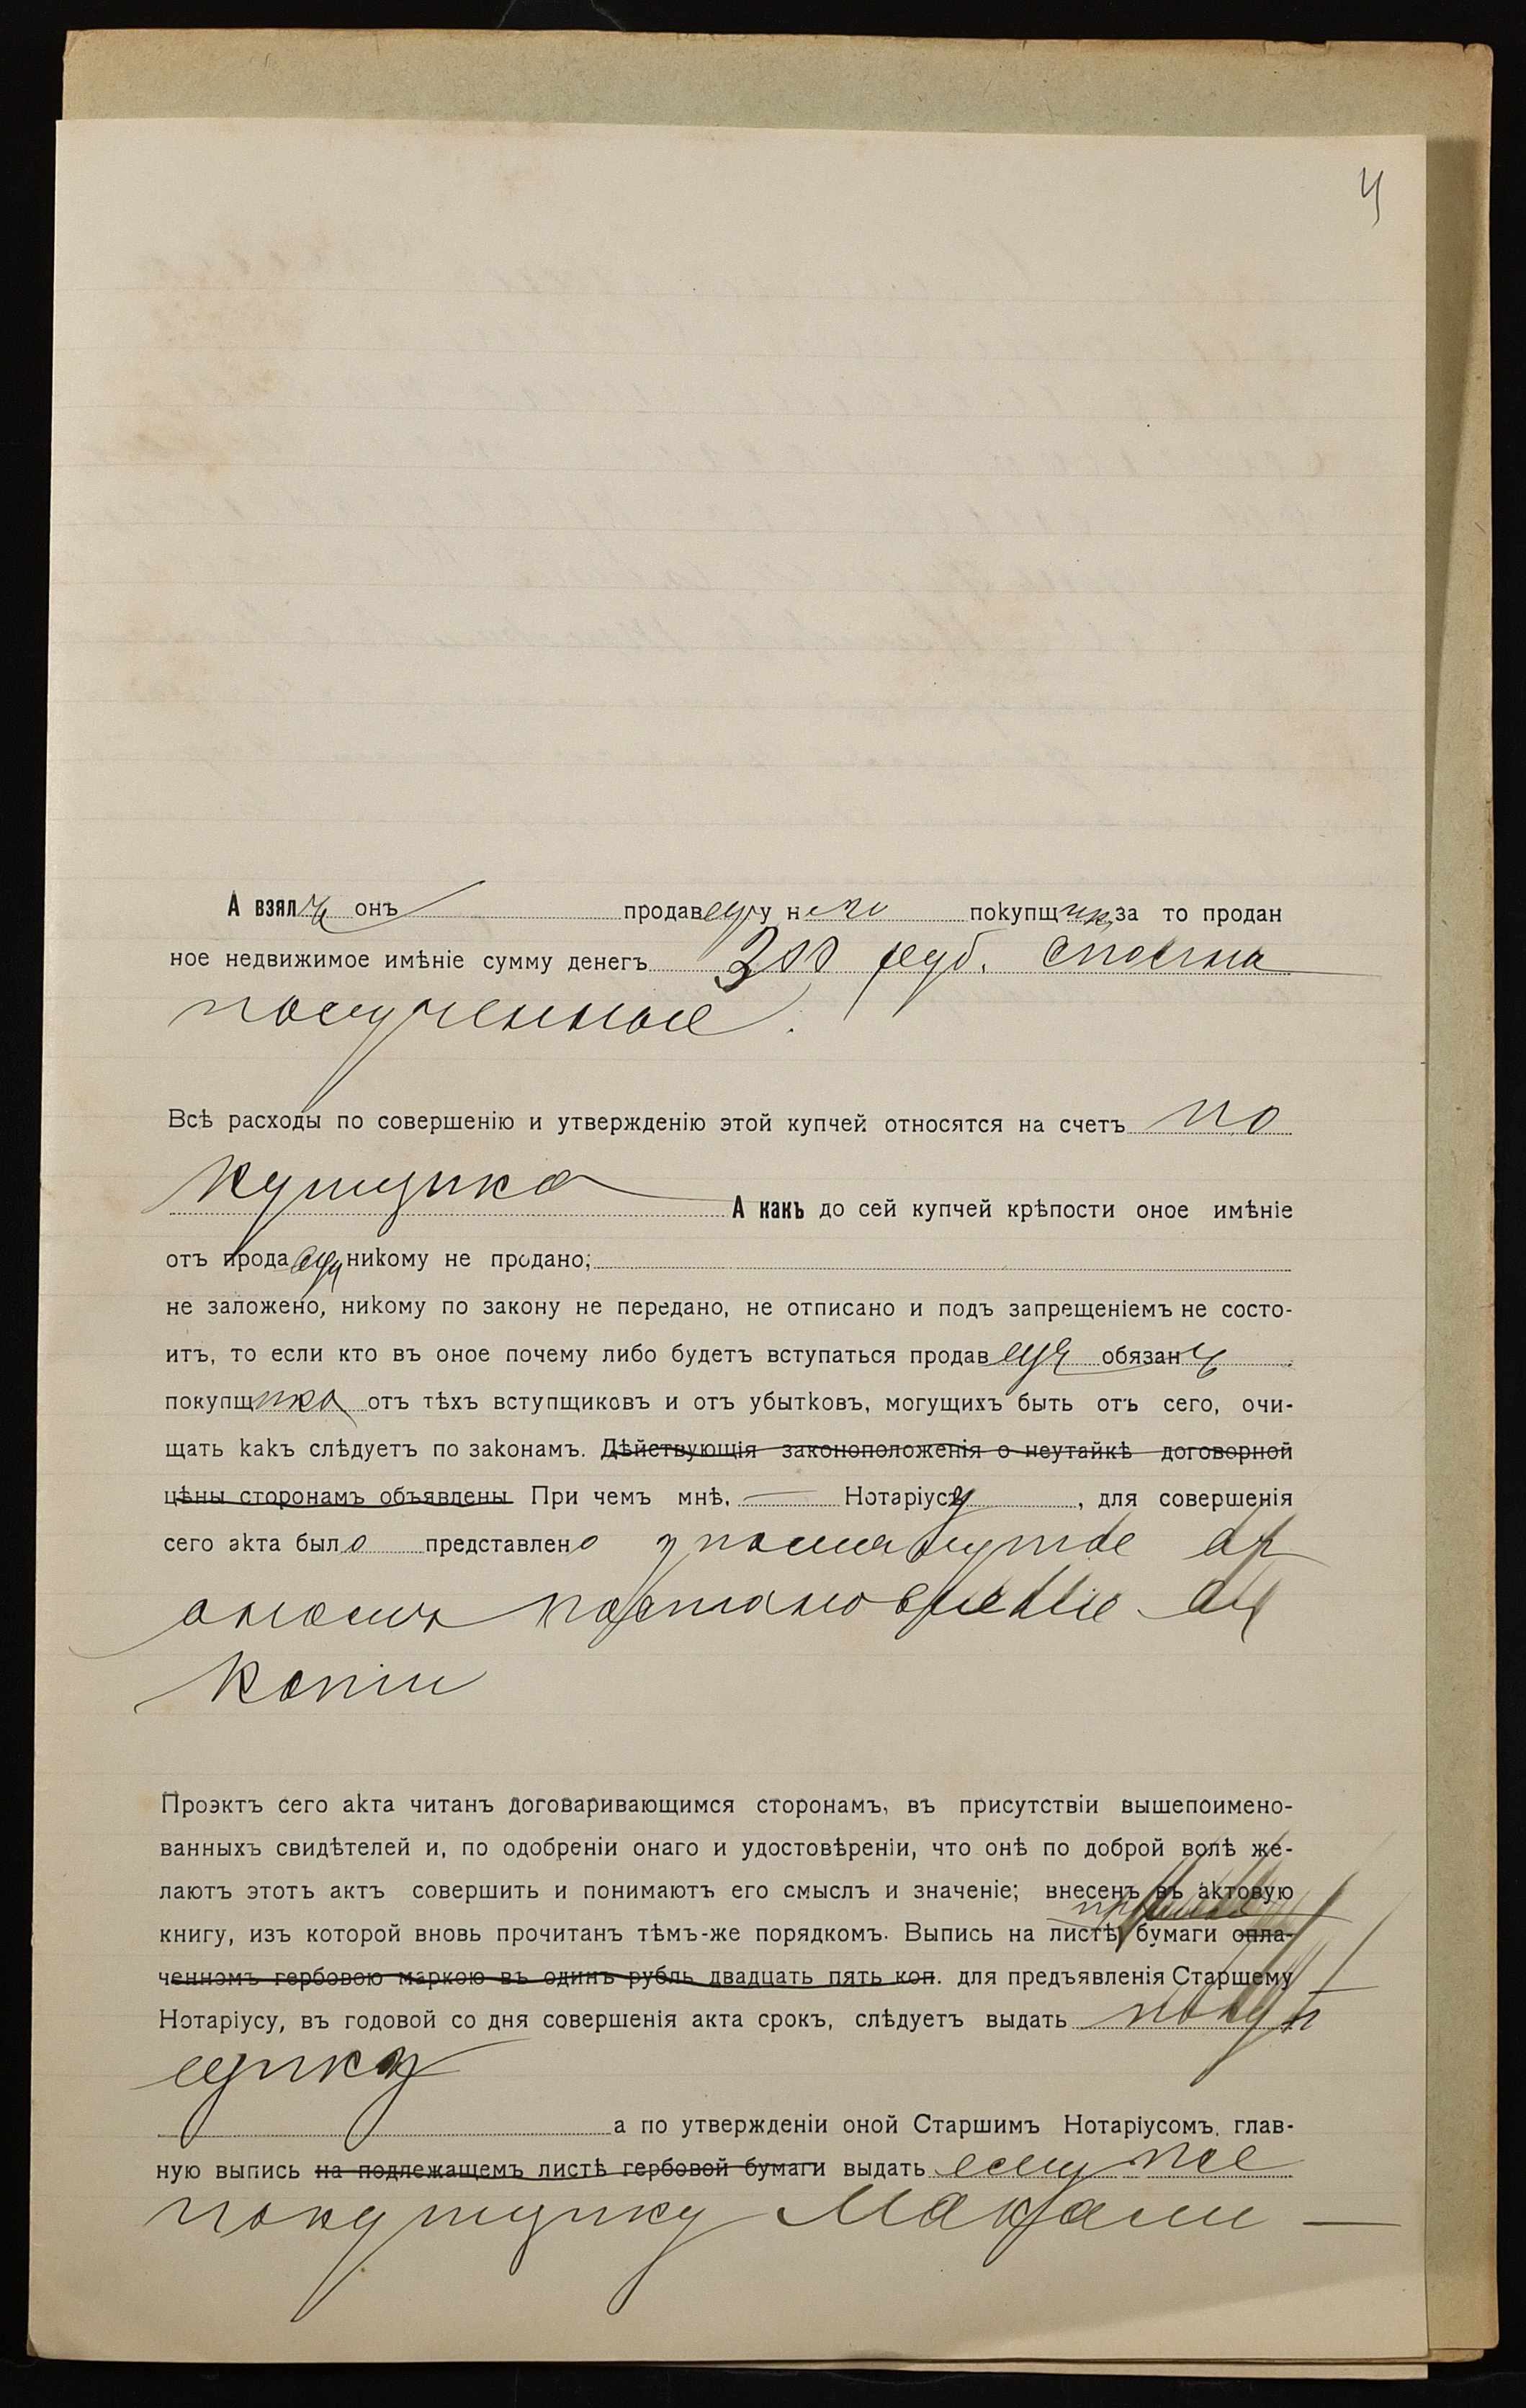 4
А взялъ онъ продавецъ у него покупщика за то продан
ное недвижимое имѣніе сумму денегъ 300 руб. сполна
полученные.
Всѣ расходы по совершенію и утвержденію этой купчей относятся на счетъ по
купщика А какъ до сей купчей крѣпости оное имѣніе
отъ продавца никому не продано;
не заложено, никому по закону не передано, не отписано и подъ запрещеніемъ не состо-
итъ, то если кто въ оное почему либо будетъ вступаться продавецъ обязанъ
покупщика отъ тѣхъ вступщиковъ и отъ убытковъ, могущихъ быть отъ сего, очи-
щать какъ слѣдуетъ по законамъ. Дѣйствующія законоположенія о неутайкѣ договорной
цѣны сторонамъ объявлены При чемъ мнѣ, Нотаріусу, для совершенія
сего акта было представлено упомянутое
постановленіе
копіи
Проэктъ сего акта читанъ договаривающимся сторонамъ, въ присутствіи вышепоимено-
ванныхъ свидѣтелей и, по одобреніи онаго и удостовѣреніи, что онѣ по доброй волѣ же-
лаютъ этотъ актъ совершить и понимаютъ его смыслъ и значеніе; внесенъ въ актовую
книгу, изъ которой вновь прочитанъ тѣмъ-же порядкомъ. Выпись на листѣ бумаги опла-
ченномъ гербовою маркою въ одинъ рубль двадцать пять коп. для предъявленія Старшему
Нотаріусу, въ годовой со дня совершенія акта срокъ, слѣдуетъ выдать покуп
щику
а по утвержденіи оной Старшимъ Нотаріусомъ, глав-
ную выпись на подлежащемъ листѣ гербовой бумаги выдать ему же
покупщику